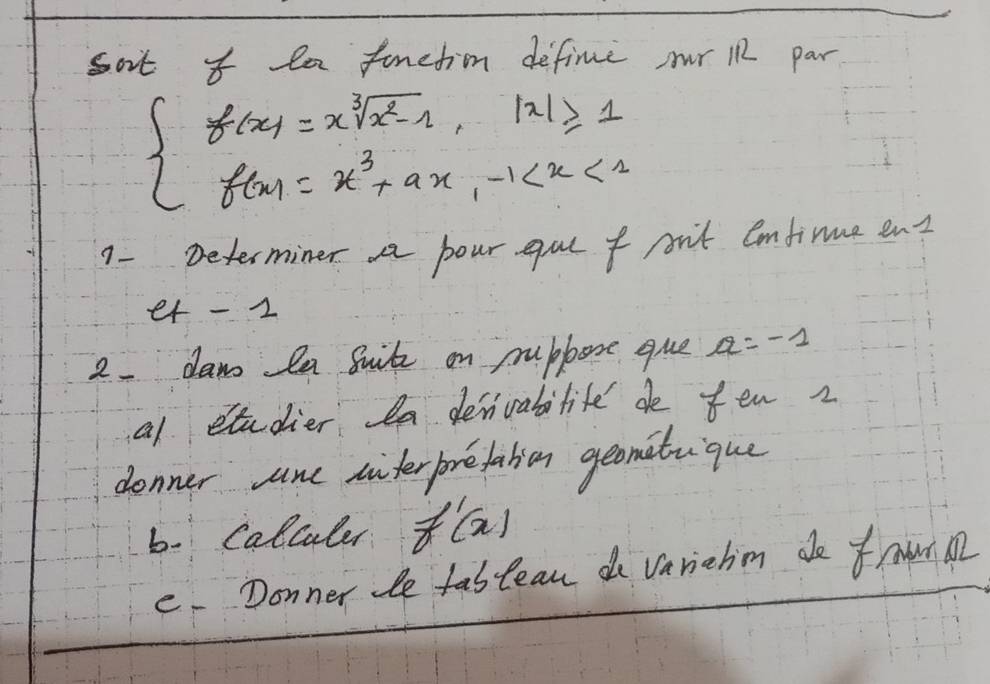 Soit f la fonction définie sur ℝ par
f(x) = x∛(x²-1), |x| ≥ 1
f(x) = x³ + ax, -1 < x < 1
1- Determiner a pour que f soit continue en 1
et - 1
2- dans la suite on suppose que a = -1
a) étudier la dérivabilité de f en 1
donner une interprétation géométrique
b- calculer f'(x)
c- Donner le tableau de variation de f sur ℝ